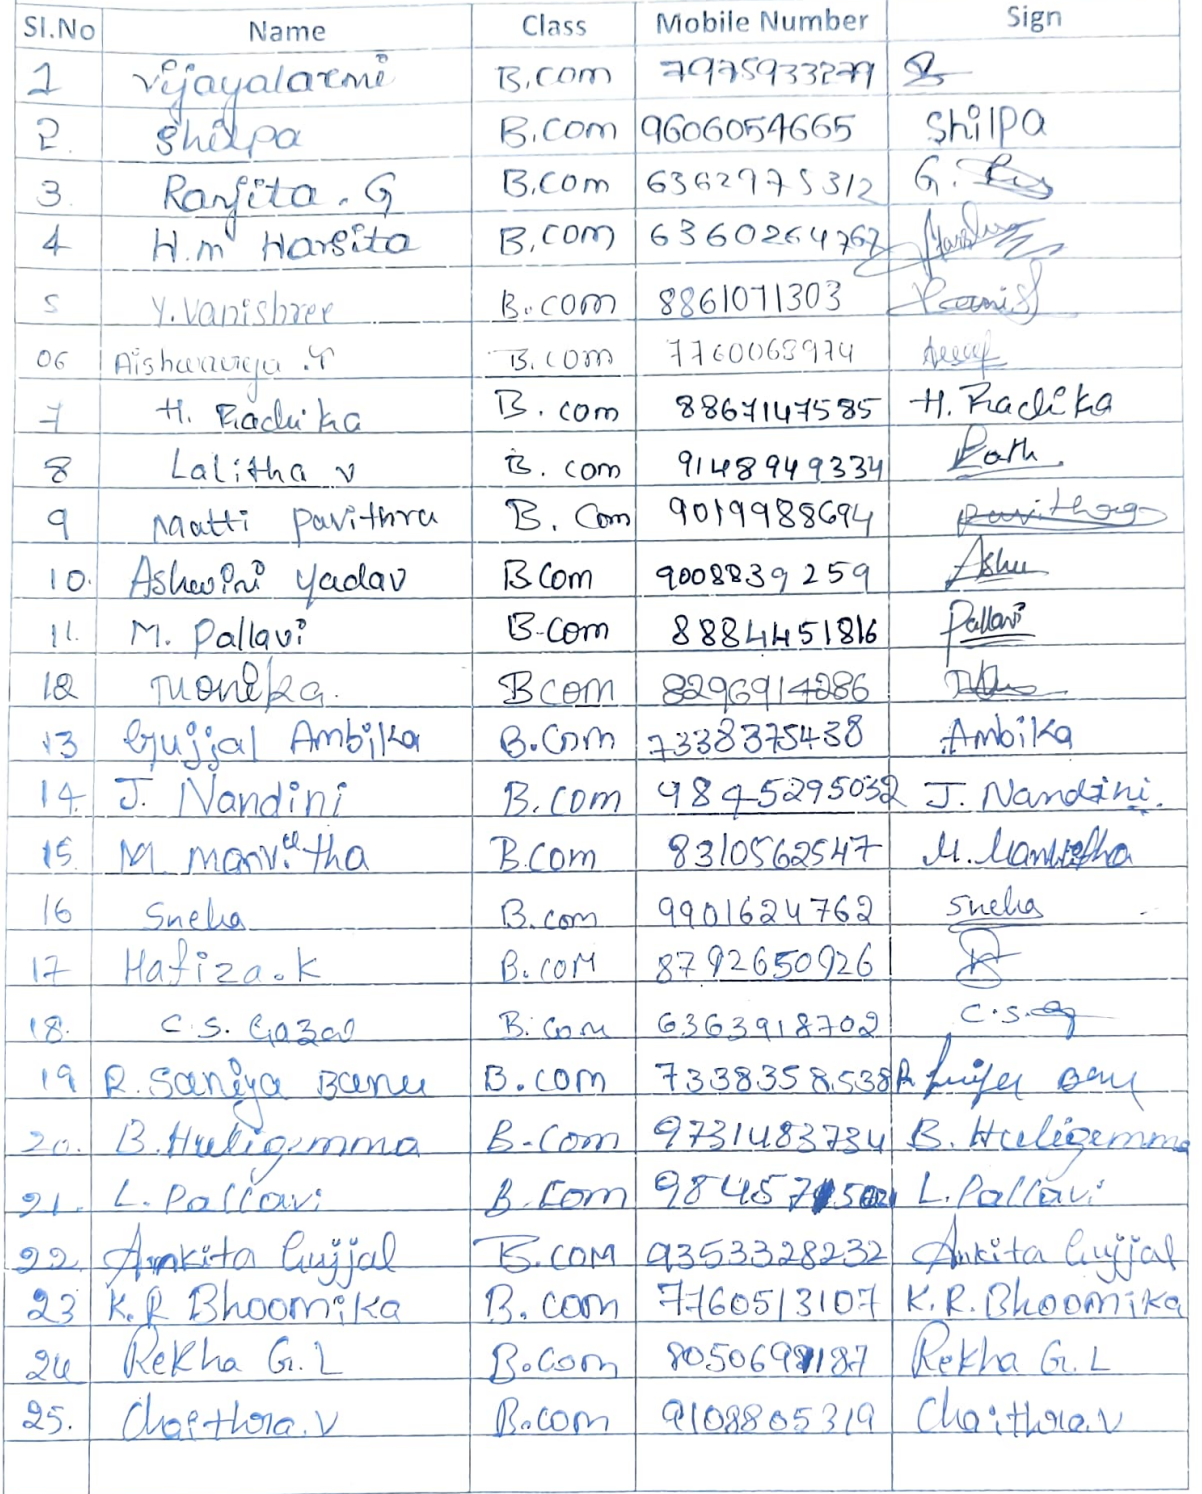 Sl.No Name Class Mobile Number Sign
1 Vijayalaxmi B.com 7975933279
2. Shilpa B.com 9606054665 Shilpa
3. Ranjita . G B.com 6362975312 G.
4 H.m Harsita B.com 6360264762
5 Y. Vanishree B.com 8861071303
06 Aishwarya .Y B.com 7760063974
7 H. Radhika B.com 8867147585 H. Radika
8 Lalitha v B.com 9148949334
9 Matti Pavithra B.Com 9019988694 Pavithra
10. Ashwini Yadav BCom 9008839259 Ashu
11. M. Pallavi B-com 8884451816 Pallavi
12 Monika. Bcom 8296914286
13 Gujjal Ambika B.Com 7338375438 Ambika
14. J. Nandini B.com 9845295032 J. Nandini.
15. M manvitha B.com 8310562547 M. Manvitha
16 Sneha B.com 9901624762 Sneha
17 Hafiza.K B.coM 8792650926
18. C.S. Gazal B.com 6363918702 C.S.
19 R. Saniya Banu B.com 7338358538 R
20. B.Huligemma B-Com 9731483734 B. Huligemma
21. L. Pallavi B.Com L. Pallavi
22. Ankita Gujjal B.COM 9353328232 Ankita Gujjal
23 K.R Bhoomika B.com 7760513107 K.R.Bhoomika
24 Rekha G.L B.Com Rekha G.L
25. Chaithra.V B.com 9108805319 Chaithra.V